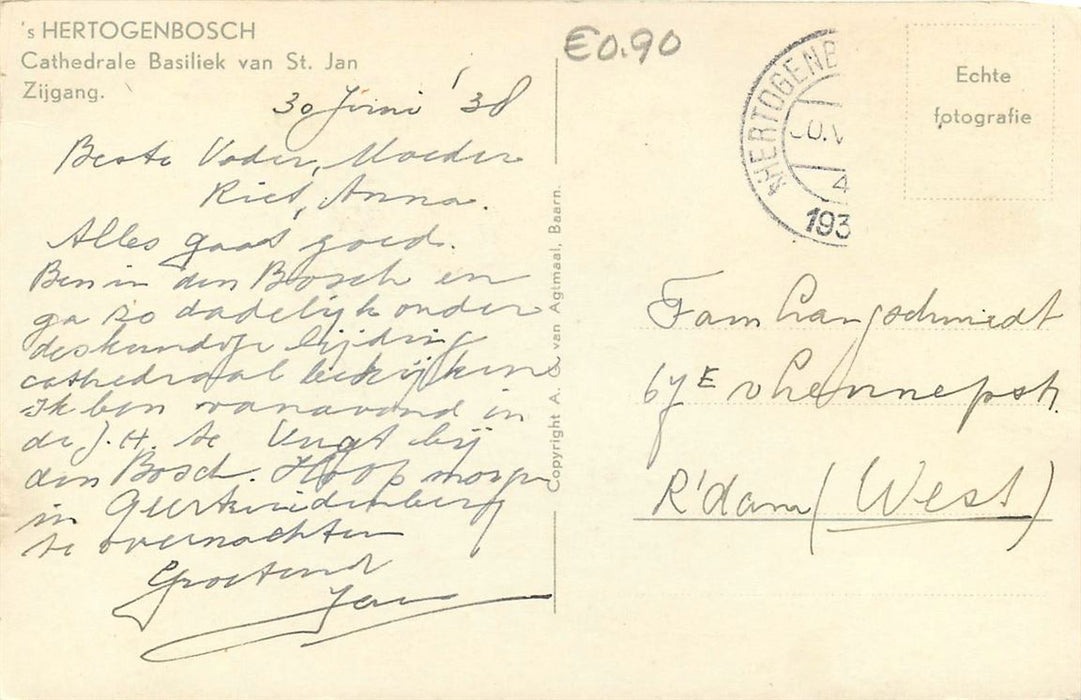 's HERTOGENBOSCH
Cathedrale Basiliek van St. Jan
Zijgang.
30 Juni '38
Beste Vader, Moeder
Riet, Anna.
Alles gaat goed.
Ben in den Bosch en
ga zo dadelijk onder
deskundige leiding
cathedraal bekijken
Ik ben vanavond in
de J.H. te Vught bij
den Bosch. Hoop morgen
in Geertruidenberg
te overnachten
Groetend
Jan
Copyright A. G. van Agtmaal, Baarn.
€0.90
HERTOGENB
193
Echte
fotografie
Fam Langschmidt
67E v Lennepstr.
R'dam (West)